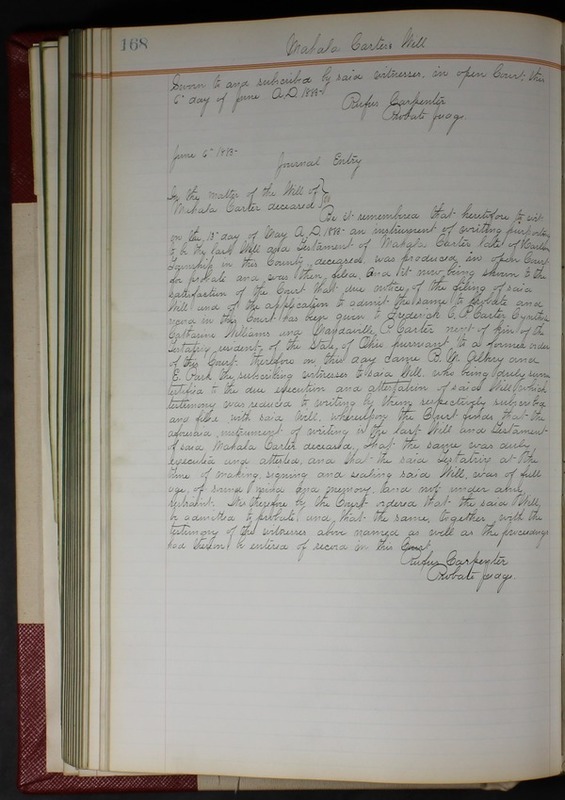 168
Mahala Carter's Will
Sworn to and subscribed by said witnesses, in open Court, this
6" day of June A.D. 1888
Rufus Carpenter
Probate Judge.
June 6" 1888
Journal Entry
In the matter of the Will of
Mahala Carter deceased
Be it remembered that heretofore to wit
on the 18" day of May A.D. 1888 an instrument of writing purporting
to be the last Will and Testament of Mahala Carter late of
Township in this County, deceased, was produced in open Court
for probate and was then filed. And it now being shown to the
satisfaction of the Court that due notice, of the filing of said
Will and of the application to admit the same to probate and
record in this Court has been given to Frederick C. P. Carter, Cynthia
Catharine Williams and Mandaville P. Carter next of kin of the
testatrix, resident, of the State of Ohio pursuant to a former order
of this Court. Therefore on this day came B. W. and
E. the subscribing witnesses to said Will. who being duly sworn
testified to the due execution and attestation of said Will which
testimony was reduced to writing by them respectively subscribed
and filed with said Will. whereupon the Court finds that the
aforesaid instrument of writing is the last Will and Testament
of said Mahala Carter deceased, that the same was duly
executed and attested, and that the said testatrix at the
time of making, signing and sealing said Will, was of full
age of sound mind and memory, and not under any
restraint. It is therefore by the Court ordered that the said Will,
be admitted to probate, and, that the same, together, with the
testimony of the witnesses above named as well as the proceedings
had thereon be entered of record in this Court
Rufus Carpenter
Probate Judge.